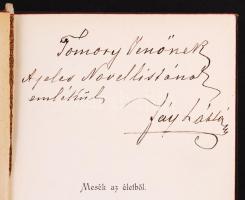 Tomory Jenőnek
A jeles Novellistának
emlékül
Fáy László
Mesék az életből.